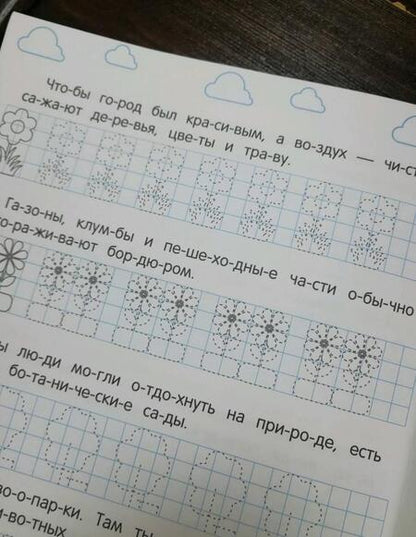 Что-бы го-род был кра-си-вым, а во-здух — чи-ст
са-жа-ют де-ре-вья, цве-ты и тра-ву.
Га-зо-ны, клум-бы и пе-ше-хо-дны-е ча-сти о-бы-чно
го-ра-жи-ва-ют бор-дю-ром.
ы лю-ди мо-гли о-тдо-хнуть на при-ро-де, есть
бо-та-ни-че-ски-е са-ды.
зо-о-пар-ки. Там ты
и-во-тных